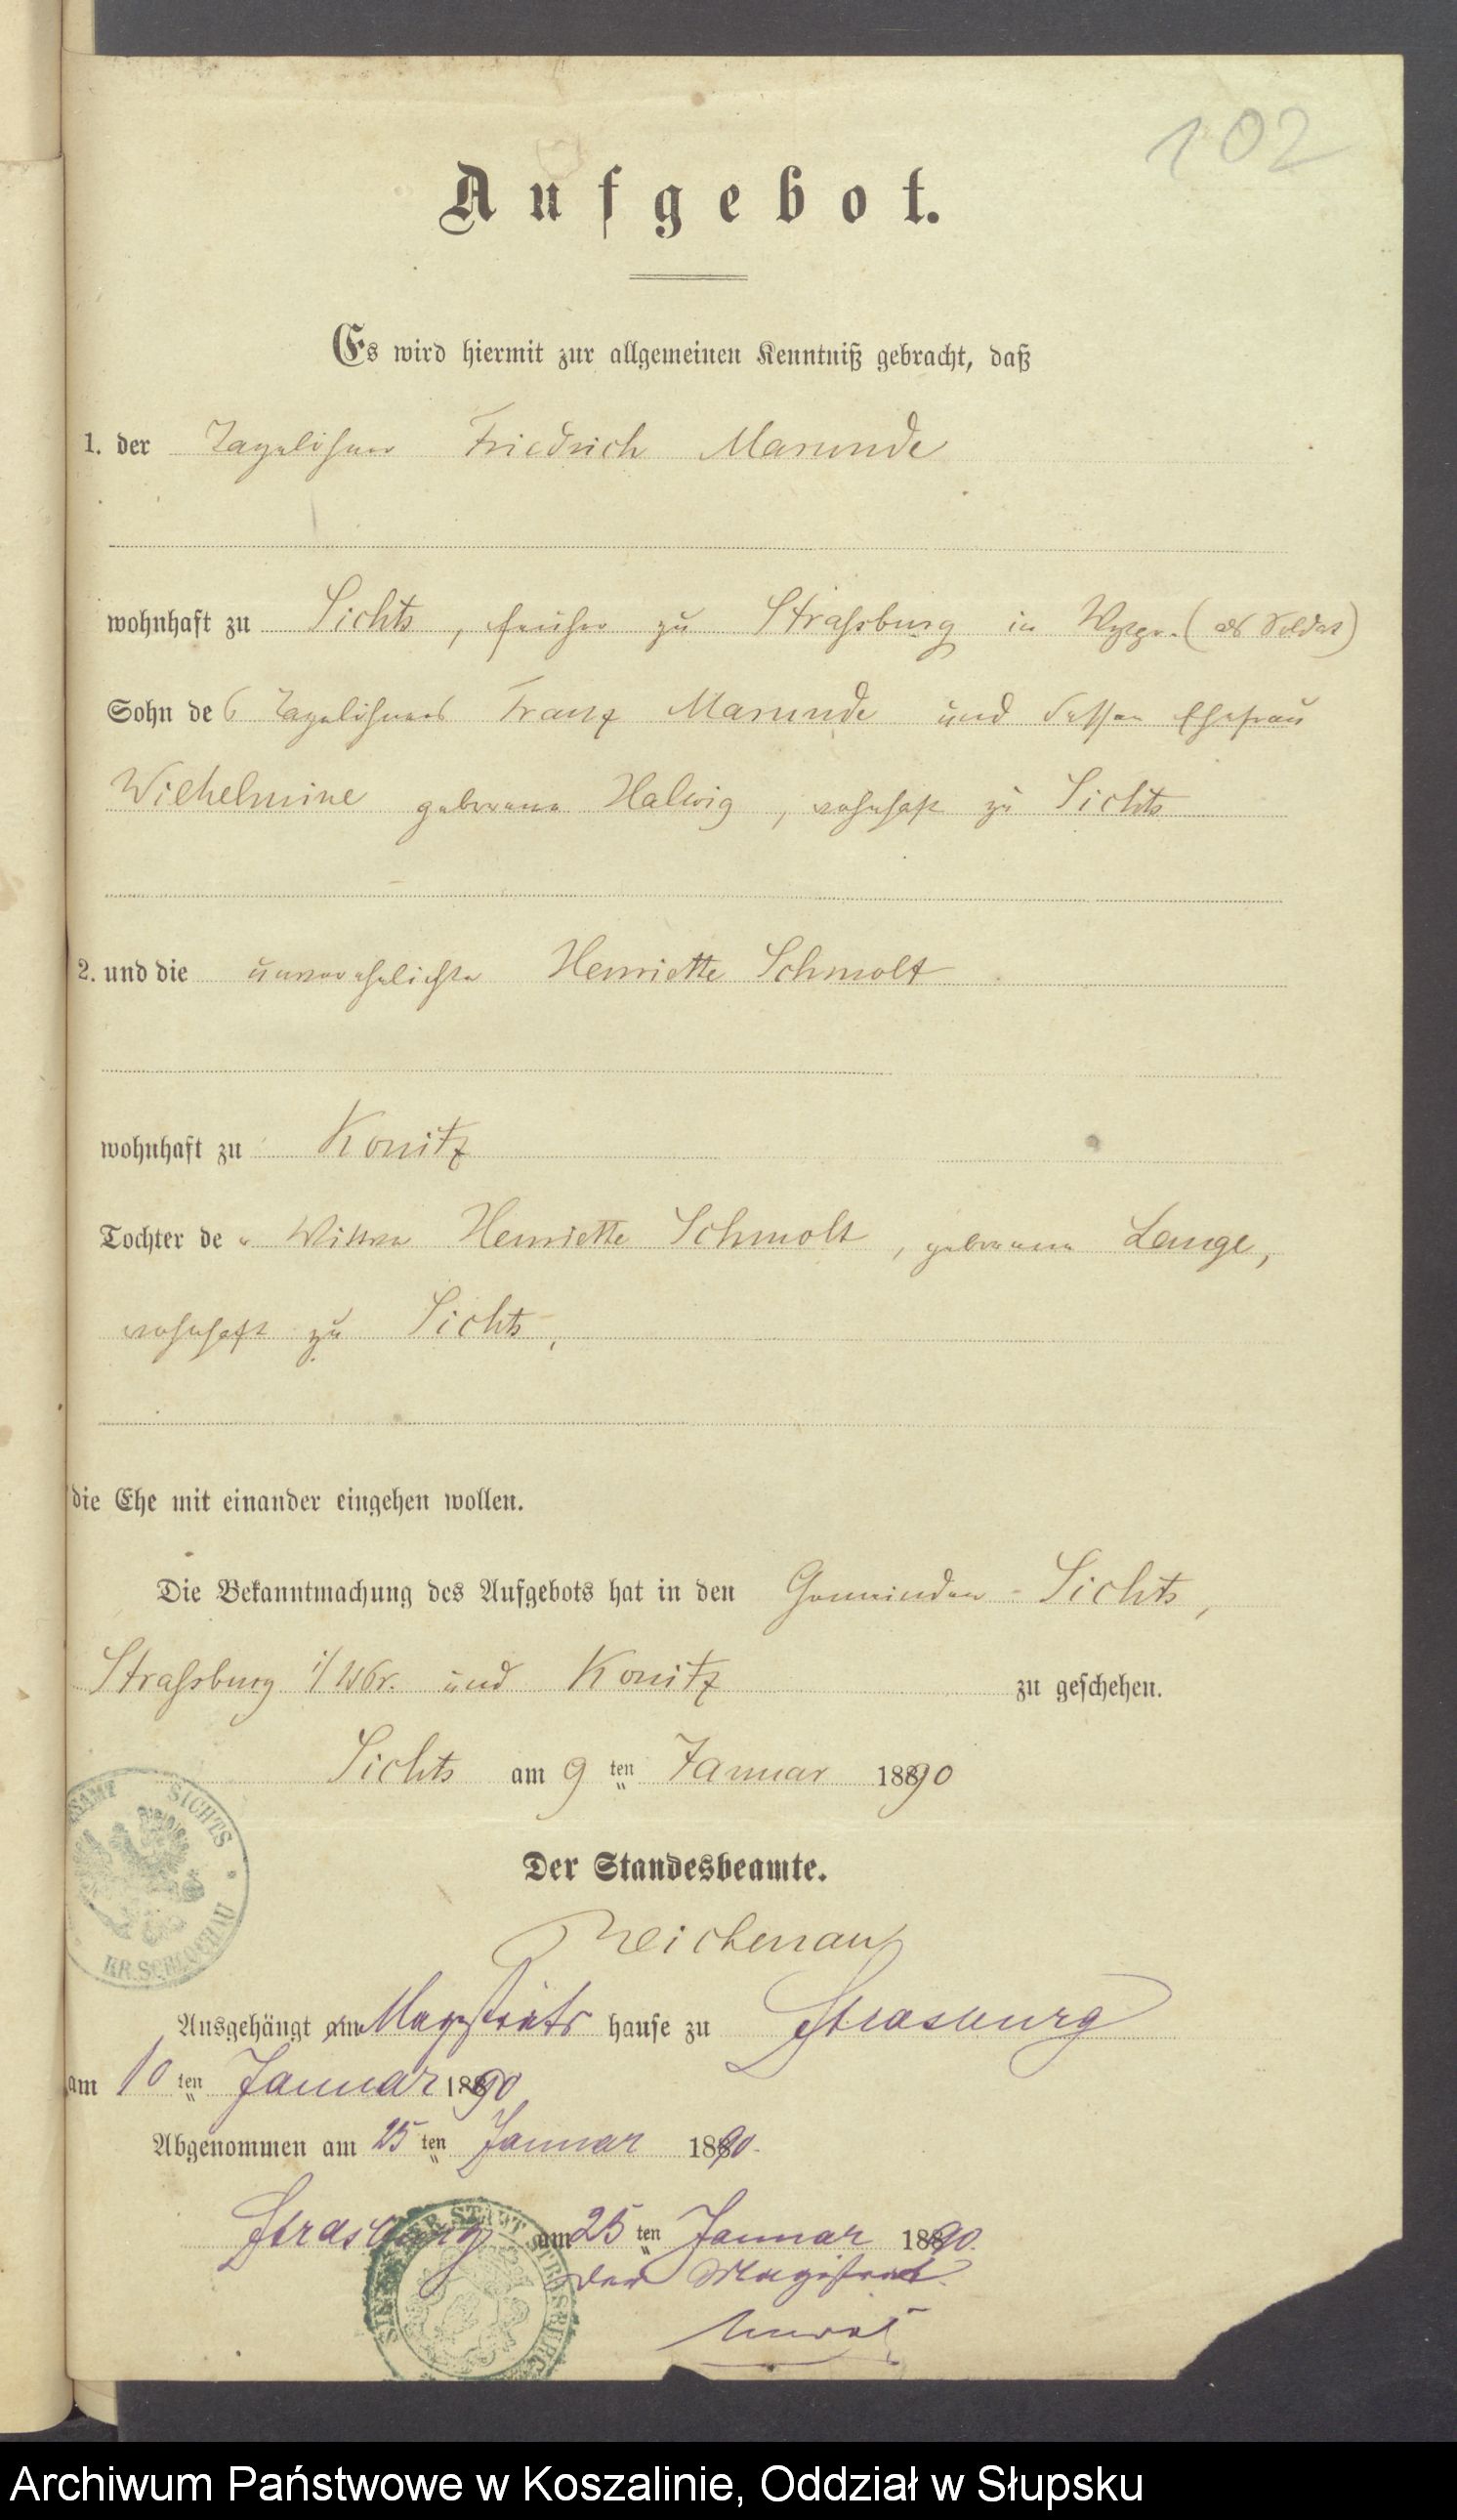 102
Aufgebot.
Es wird hiermit zur allgemeinen Kenntniß gebracht, daß
1. der Tagelöhner Friedrich Marunde
wohnhaft zu Sichts, früher zu Straßburg in Wpr. (als Soldat)
Sohn des Tagelöhners Franz Marunde und dessen Ehefrau
Wilhelmine geborene Halwig, wohnhaft zu Sichts
2. und die unverehelichte Henriette Schmolt
wohnhaft zu Konitz
Tochter der Wittwe Henriette Schmolt, geborene Lange,
wohnhaft zu Sichts,
die Ehe mit einander eingehen wollen.
Die Bekanntmachung des Aufgebots hat in den Gemeinden Sichts,
Straßburg i/ Wpr. und Konitz zu geschehen.
Sichts am 9ten Januar 1890
SICHTS
KR. SCHLOCHAU
Der Standesbeamte.
Reichenau
Ausgehängt am Magistrats hause zu Strasburg
am 10ten Januar 1890
Abgenommen am 25ten Januar 1890.
Strasburg am 25ten Januar 1890.
Der Magistrat